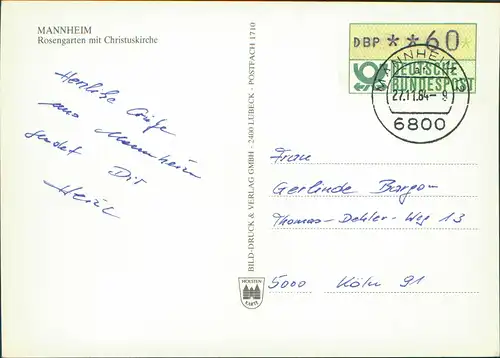 MANNHEIM
Rosengarten mit Christuskirche
Herzliche Grüße
aus Mannheim
sendet Dir
BILD-DRUCK & VERLAG GMBH · 2400 LÜBECK · POSTFACH 1710
HOLSTEN
KARTE
DBP **60
DEUTSCHE
BUNDESPOST
MANNHEIM
27.11.84-9
6800
Frau
Gerlinde Bargon
Thomas-Dehler-Weg 13
5000 Köln 91